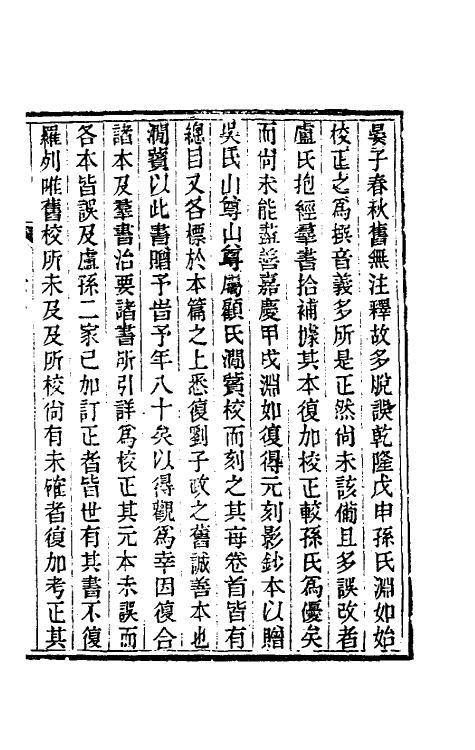 晏子春秋舊無注釋故多脫誤乾隆戊申孫氏淵如始
校正之爲撰音義多所是正然尚未該備且多誤改者
盧氏抱經羣書拾補據其本復加校正較孫氏爲優矣
而尚未能盡善嘉慶甲戌淵如復得元刻影鈔本以贈
吳氏山尊山尊屬顧氏澗薲校而刻之其每卷首皆有
總目又各標於本篇之上悉復劉子政之舊誠善本也
澗薲以此書贈予昔予年八十矣以得觀爲幸因復合
諸本及羣書治要諸書所引詳爲校正其元本未誤而
各本皆誤及盧孫二家已加訂正者皆世有其書不復
羅列唯舊校所未及及所校尚有未確者復加考正其